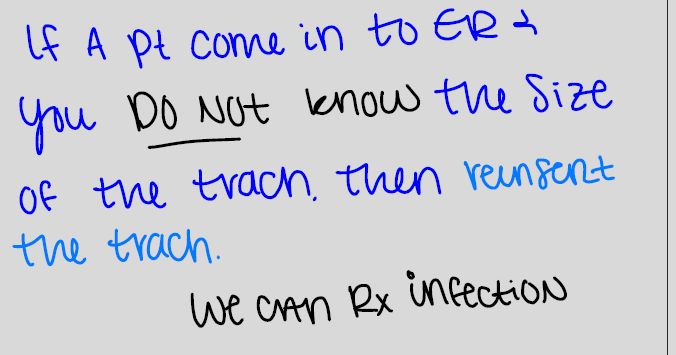 If A pt come in to ER &
you DO NOT know the size
of the trach, then reinsert
the trach.
We CAN Rx infection